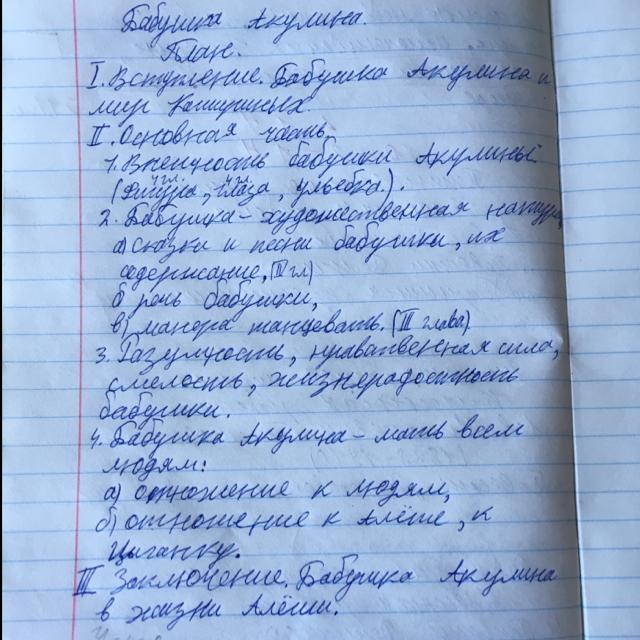 Бабушка Акулина.
План.
I. Вступление. Бабушка Акулина и
мир Кашириных.
II. Основная часть.
1. Внешность бабушки Акулины
1 гл. 4 гл.
(Фигура, глаза, улыбка).
2. Бабушка – художественная натура
а) сказки и песни бабушки, их
содержание, (II гл)
б речь бабушки,
в) манера танцевать. (III глава)
3. Разумность, нравственная сила,
смелость, жизнерадостность
бабушки.
4. Бабушка Акулина – мать всем
людям:
а) отношение к людям,
б) отношение к Алёше, к
Цыганку.
III Заключение. Бабушка Акулина
в жизни Алёши.